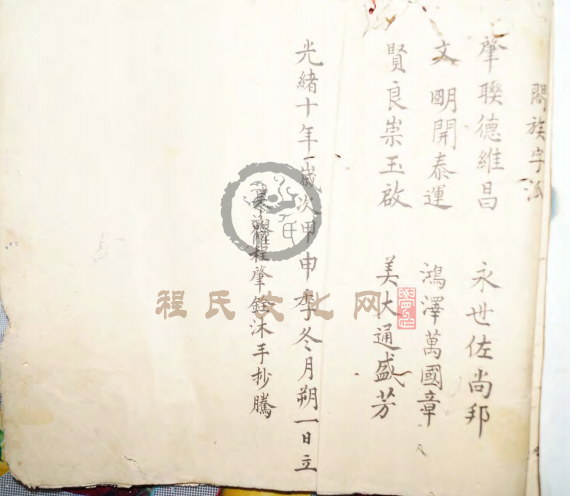 閤族字派
肇聯德維昌 永世佐尚邦
文明開泰運 鴻澤萬國章
賢良崇玉啟 美大通盛芳
光緒十年歲次甲申季冬月朔一日立
程肇銓沐手抄騰
程氏文化网